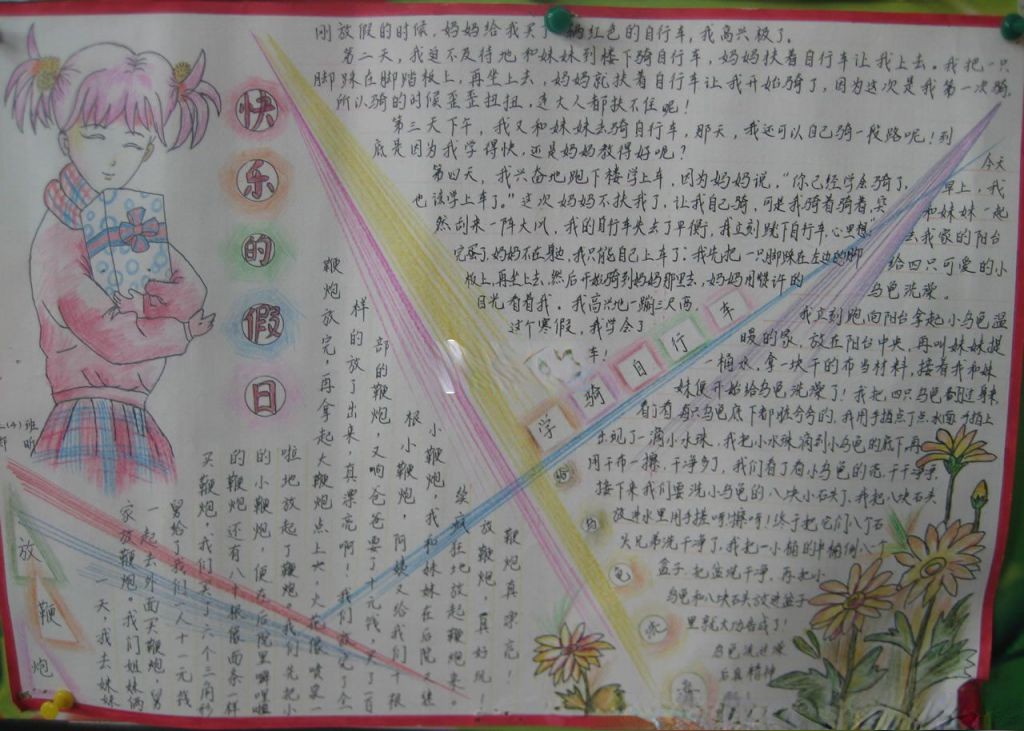 快乐的假日
刚放假的时候，妈妈给我买了一辆红色的自行车，我高兴极了。
第二天，我迫不及待地和妹妹到楼下骑自行车，妈妈扶着自行车让我上去。我把一只
脚踩在脚踏板上，再坐上去，妈妈就扶着自行车让我开始骑了，因为这次是我第一次骑，
所以骑的时候歪歪扭扭，连大人都扶不住呢！
第三天下午，我又和妹妹去骑自行车，那天，我还可以自己骑一段路呢！到
底是因为我学得快，还是妈妈教得好呢？
第四天，我兴奋地跑下楼学上车，因为妈妈说，“你已经学会骑了，
也该学上车了。”这次妈妈不扶我了，让我自己骑，可是我骑着骑着，突
然刮来一阵大风，我的自行车失去了平衡，我立刻跳下自行车，心里想
完蛋了，妈妈不在身边，我只能自己上车了：我先把一只脚踩在左边的脚
板上，再坐上去，然后开始骑到妈妈那里去，妈妈用赞许的
目光看着我。我高兴地一蹦三尺高。
这个寒假，我学会了
车！
学骑自行车
今天
早上，我
和妹妹一起
去我家的阳台
给四只可爱的小
乌龟洗澡。
我立刻跑向阳台拿起小乌龟温
暖的家，放在阳台中央，再叫妹妹提
一桶水，拿一块干的布当材料，接着我和妹
妹便开始给乌龟洗澡了！我把四只乌龟
出现了一滴小水珠，我把小水珠滴到小乌龟的底下再
用干布一擦，干净多了，我们看了看小乌龟的壳，干干净净，
接下来我们要洗小乌龟的八块小石头了，我把八块石头
放进水里用手搓呀！擦呀！终于把它们八个石
头兄弟洗干净了，我把一小桶的
盆子，把盆洗干净，再把小
乌龟和八块石头放进盆子
里就大功告成了！
乌龟洗过澡
后真精神
给乌龟洗澡
放鞭炮
一天，我去妹妹
家放鞭炮。我们姐妹俩
一起去外面买鞭炮，舅
舅给了我们一人十一元钱
买鞭炮，我们买了六个三角形
的鞭炮还有八个很像面条一样
的小鞭炮，便在后院里噼哩啪
啦地放起了鞭炮。我们先把小
鞭炮放完，再拿起大鞭炮点上火，火花像喷泉一
样的放了出来，真漂亮啊！我们放完了全
部的鞭炮，又向爸爸要了十元钱，买了一百
根小鞭炮，阿姨又给我们
小鞭炮，我和妹妹在后院又继
续疯狂地放起鞭炮来。
放鞭炮，真好玩！
鞭炮真漂亮！